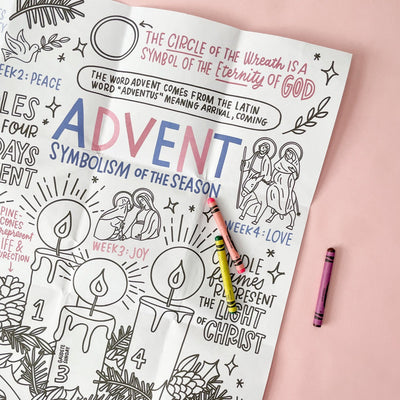 THE CIRCLE OF THE WREATH IS A
SYMBOL OF THE Eternity OF GOD
WEEK 2: PEACE
THE WORD ADVENT COMES FROM THE LATIN
WORD "ADVENTUS" MEANING ARRIVAL, COMING
FOUR
ADVENT
SYMBOLISM OF THE SEASON
WEEK 4: LOVE
WEEK 3: JOY
PINE-
CONES
REPRESENT
LIFE &
FLAMES
REPRESENT
THE LIGHT
OF CHRIST
1
3
4
GAUDETE
SUNDAY